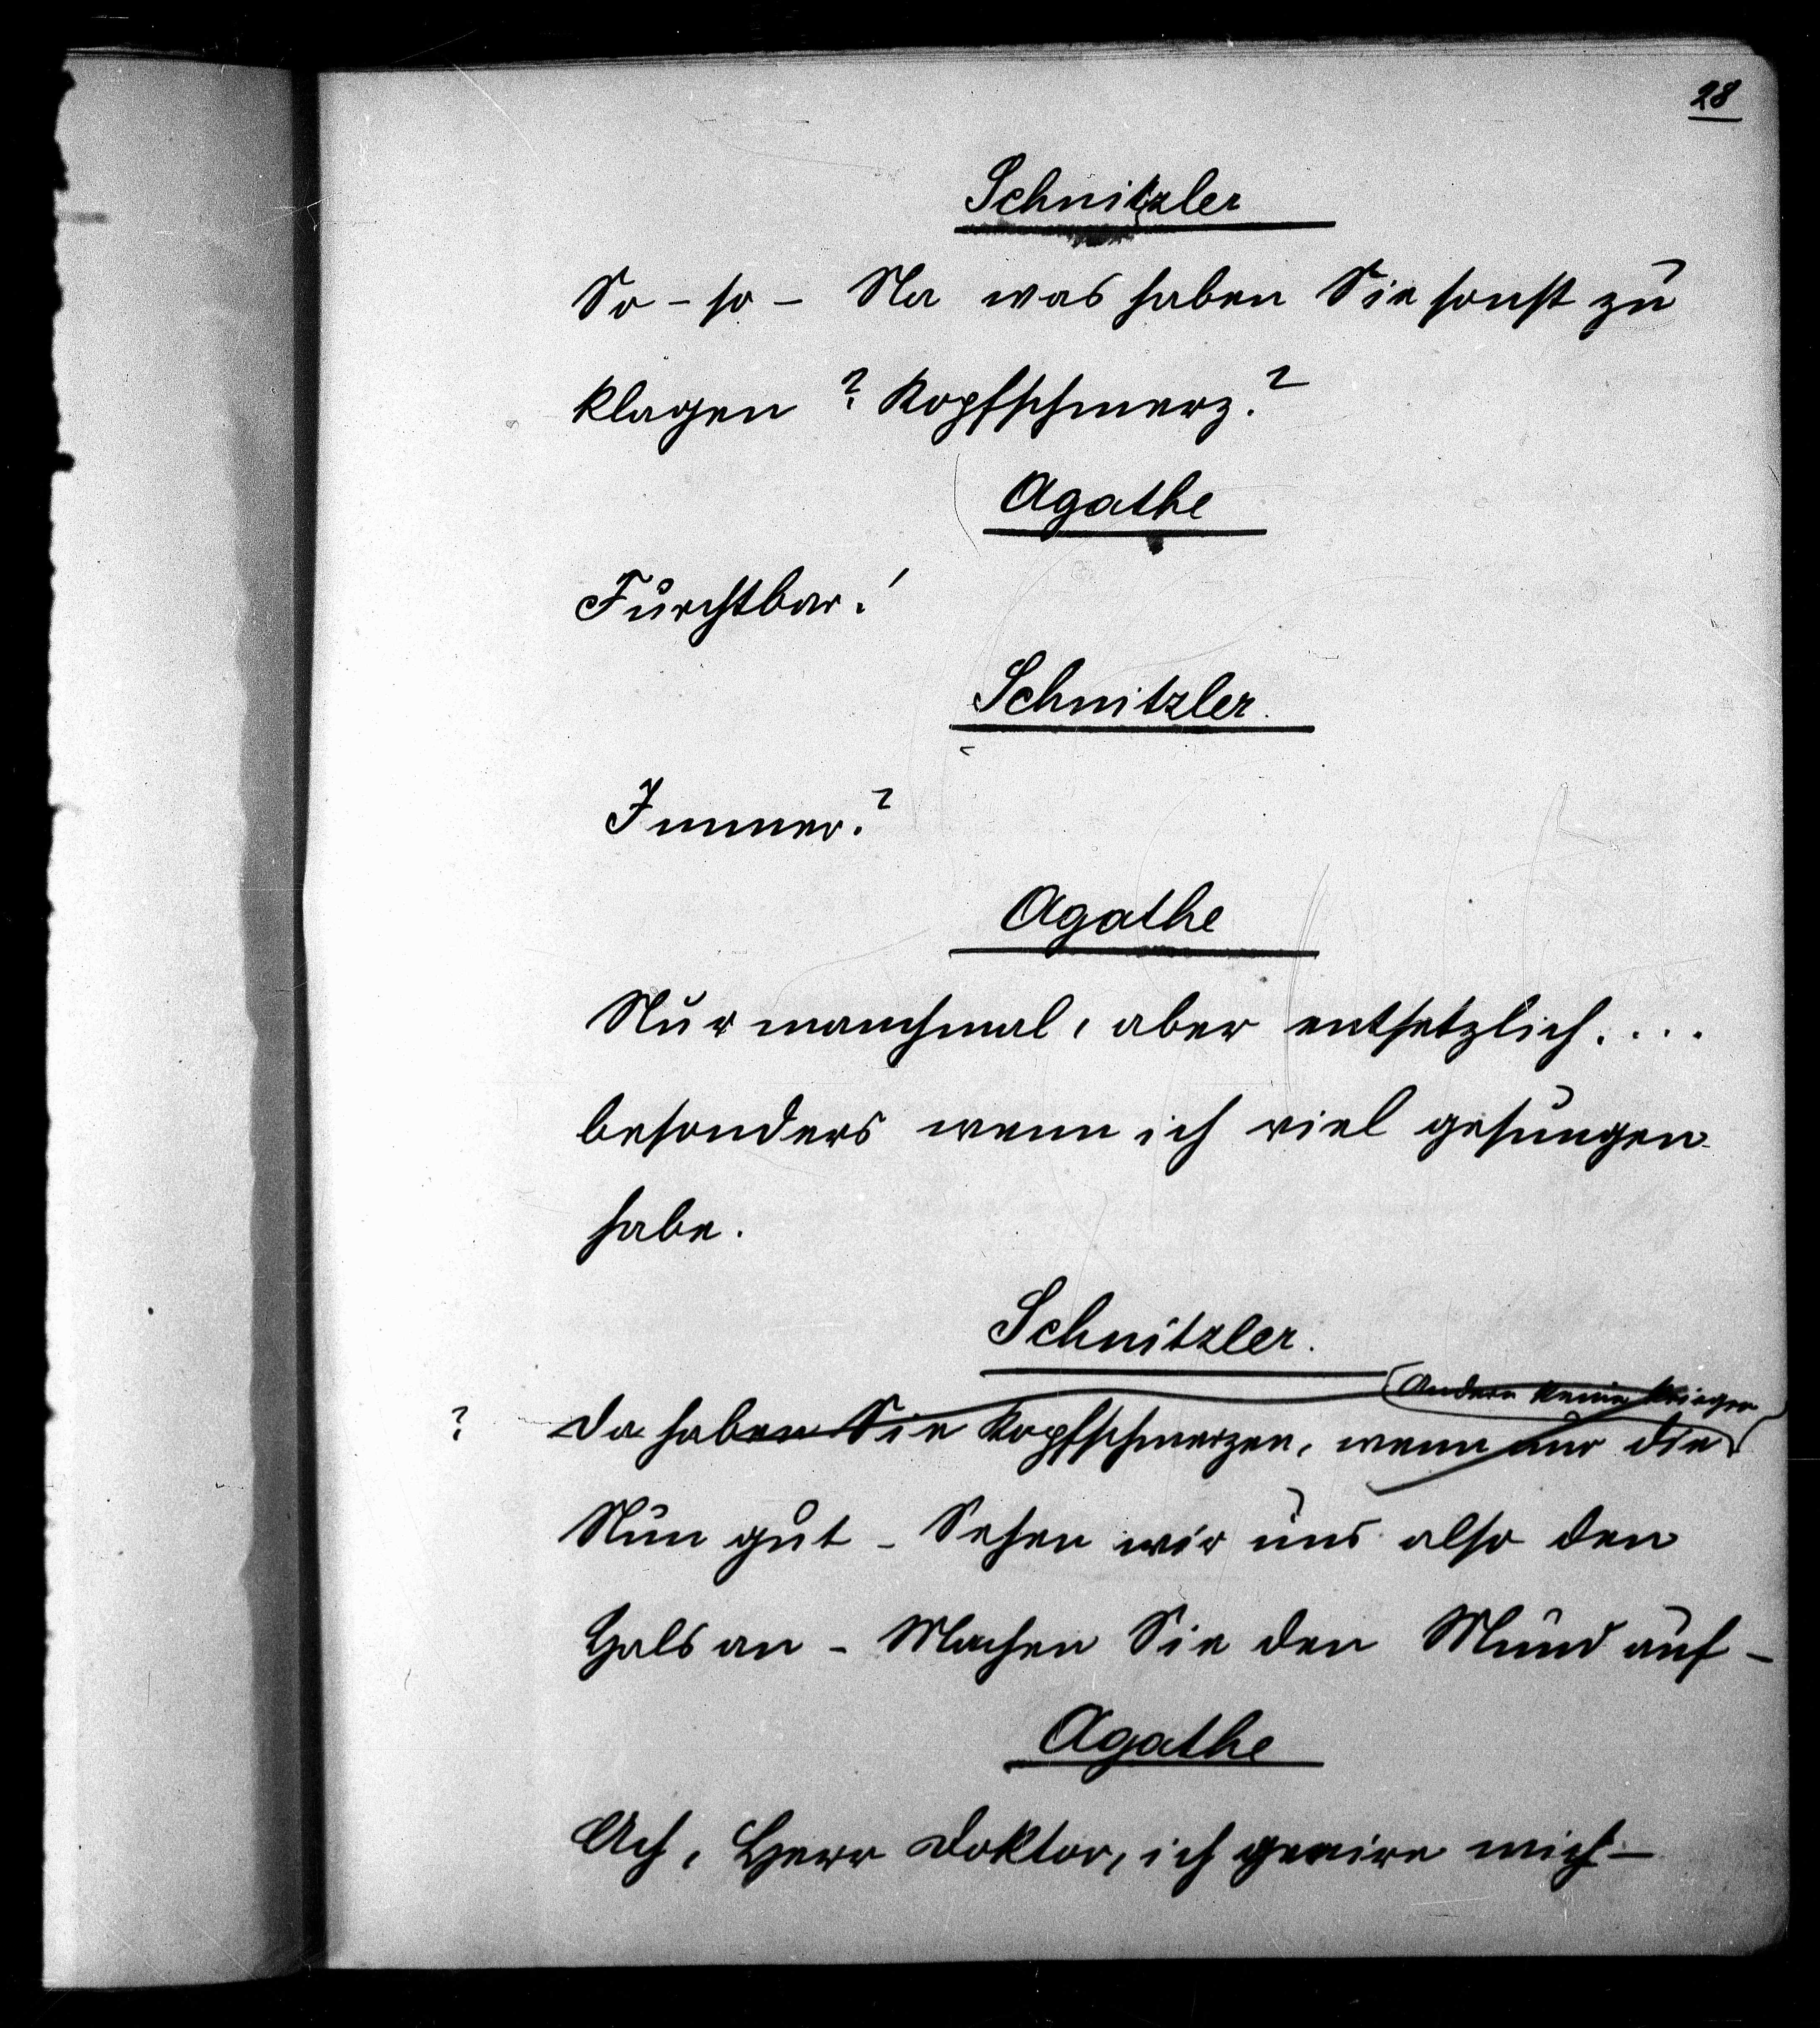 28
Schnitzler
So - so - Na was haben Sie sonst zu
klagen? Kopfschmerz?
Agathe
Furchtbar!
Schnitzler.
Immer?
Agathe
Nur manchmal, aber entsetzlich....
besonders wenn ich viel gesungen
habe.
Schnitzler.
Andern keine kriegen
? Da haben Sie Kopfschmerzen, wenn nur die
Nun gut - Sehen wir uns also den
Hals an - Machen Sie den Mund auf -
Agathe
Ach, Herr Doktor, ich genire mich -